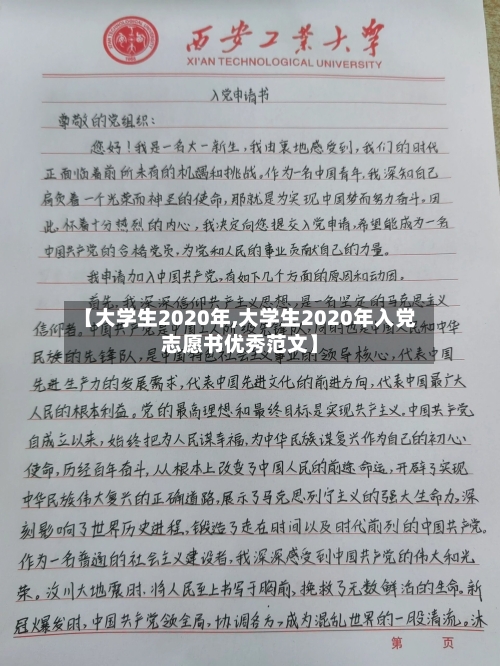 西安工业大学
XI'AN TECHNOLOGICAL UNIVERSITY
入党申请书
尊敬的党组织：
您好！我是一名大一新生，我由衷地感受到，我们的时代
正面临着前所未有的机遇和挑战。作为一名中国青年，我深知自己
肩负着一个光荣而神圣的使命，那就是为实现中国梦而努力奋斗。因
此，怀着十分热烈的内心，我决定向您提交入党申请，希望能成为一名
中国共产党的合格党员，为党和人民的事业贡献自己的力量。
我申请加入中国共产党，有如下几个方面的原因和动因。
首先，我深深信仰共产主义思想，是一名坚定的马克思主义
【大学生2020年,大学生2020年入党
信仰者。
和中华
志愿书优秀范文】
民族的先锋队，是中国特色社会主义事业的领导核心，代表中国
先进生产力的发展需求，代表中国先进文化的前进方向，代表中国最广大
人民的根本利益。党的最高理想和最终目标是实现共产主义。中国共产党
自成立以来，始终把为人民谋幸福，为中华民族谋复兴作为自己的初心
使命，历经百年奋斗，从根本上改变了中国人民的前途命运，开辟了实现
中华民族伟大复兴的正确道路，展示了马克思列宁主义的强大生命力，深
刻影响了世界历史进程，锻造了走在时间以及时代前列的中国共产党。
作为一名普通的社会主义建设者，我深深感受到中国共产党的伟大和光
荣。汶川大地震时，将人民至上书写于胸前，挽救了无数鲜活的生命。新
冠爆发时，中国共产党领全局，协调各方，成为混乱世界的一股清流。沐
第 页